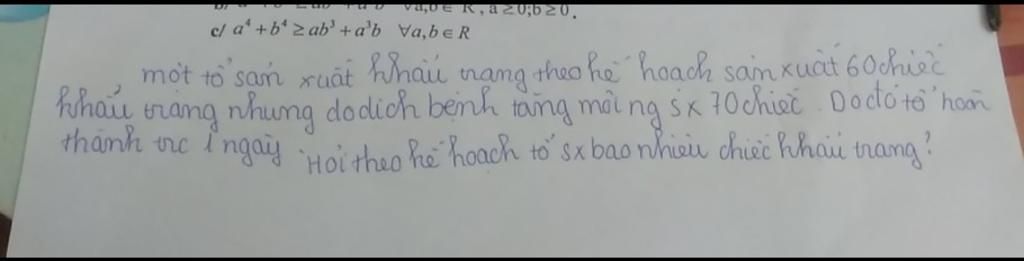 ∀a,b ∈ R, a ≥ 0; b ≥ 0.
c/ a⁴ + b⁴ ≥ ab³ + a³b ∀a,b ∈ R
một tổ sản xuất khẩu trang theo kế hoạch sản xuất 60 chiếc
khẩu trang nhưng do dịch bệnh tăng mỗi ng sx 70 chiếc. Do đó tổ hoàn
thành trc 1 ngày. Hỏi theo kế hoạch tổ sx bao nhiêu chiếc khẩu trang?